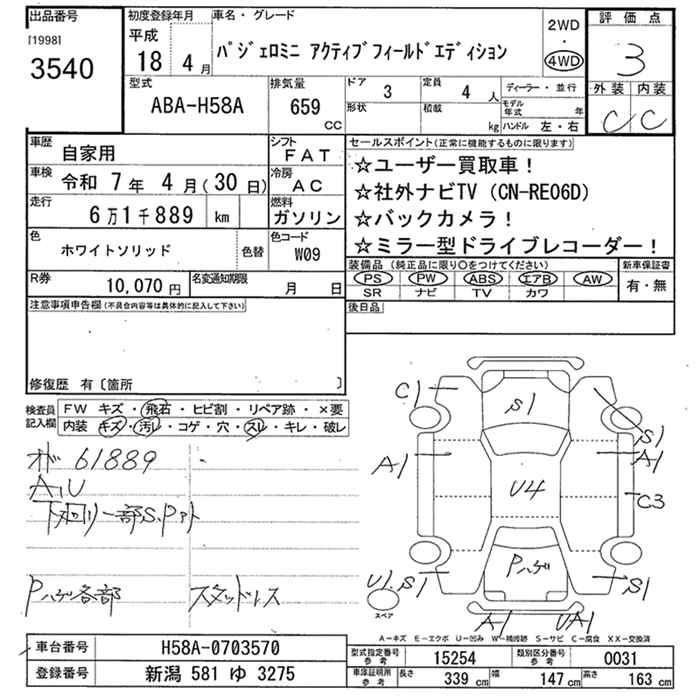 出品番号
[1998]
3540
初度登録年月
平成
18 4 月
車名・グレード
パジェロミニ アクティブフィールドエディション
2WD
・
4WD
評価点
3
型式
ABA-H58A
排気量
659
CC
ドア
3
定員
4 人
形状
積載
kg
ディーラー・並行
モデル年式
年
ハンドル 左・右
外装 内装
C C
車歴
自家用
シフト
FAT
車検
令和 7 年 4 月(30 日)
冷房
AC
走行
6万1千889 km
燃料
ガソリン
色
ホワイトソリッド
色替
色コード
W09
R券
10,070 円
名変通知期限
月 日
セールスポイント(正常に機能するものに限ります)
☆ユーザー買取車！
☆社外ナビTV（CN-RE06D）
☆バックカメラ！
☆ミラー型ドライブレコーダー！
装備品(純正品に限り○をつけてください)
PS PW ABS エアB AW
SR ナビ TV カワ
新車保証書
有・無
後日品
注意事項申告欄(不具合内容等は具体的に記入して下さい)
修復歴 有〔箇所 〕
検査員
記入欄
FW キズ・飛石・ヒビ割・リペア跡・×要
内装 キズ・汚レ・コゲ・穴・スレ・キレ・破レ
オド 61889
A,U
下廻リ一部S.Pアト
Pハゲ各部
スタッドレス
C1
S1
S1
A1
A1
U4
C3
Pハゲ
U1.S1
S1
スペア
A1
UA1
A－キズ E－エクボ U－凹み W－補修跡 S－サビ C－腐食 XX－交換済
車台番号
H58A-0703570
登録番号
新潟 581 ゆ 3275
型式指定番号
参考
15254
類別区分番号
参考
0031
車庫証明用
参考
長さ
339 cm
幅
147 cm
高さ
163 cm